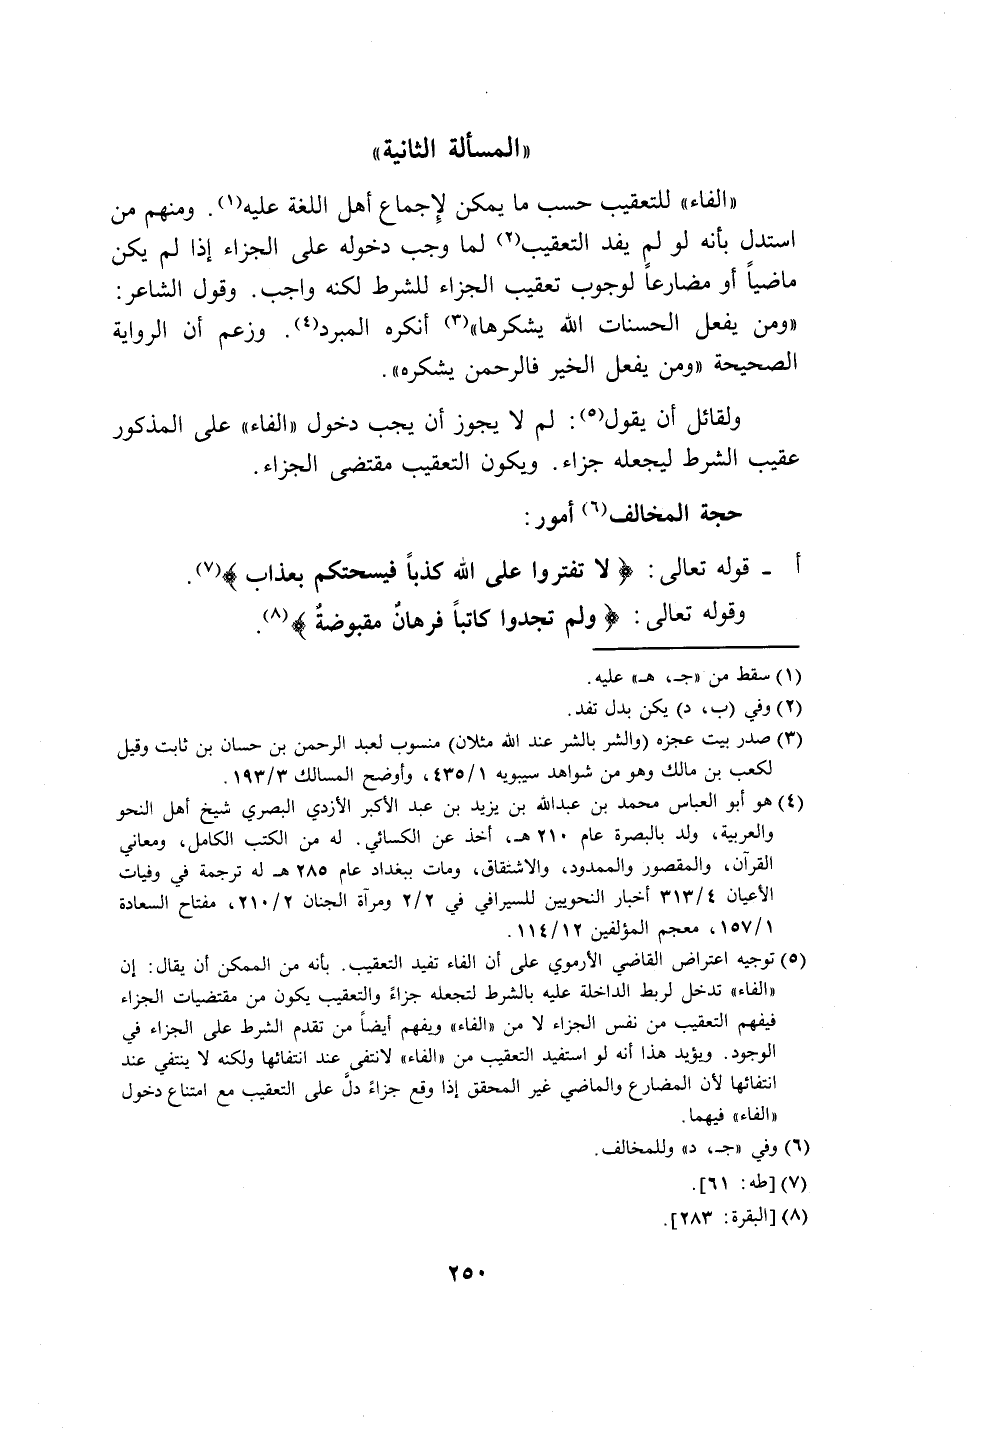 «المسألة الثانية»
«الفاء» للتعقيب حسب ما يمكن لإجماع أهل اللغة عليه(١). ومنهم من
استدل بأنه لو لم يفد التعقيب(٢) لما وجب دخوله على الجزاء إذا لم يكن
ماضياً أو مضارعاً لوجوب تعقيب الجزاء للشرط لكنه واجب. وقول الشاعر:
«ومن يفعل الحسنات الله يشكرها»(٣) أنكره المبرد(٤). وزعم أن الرواية
الصحيحة «ومن يفعل الخير فالرحمن يشكره».
ولقائل أن يقول(٥): لم لا يجوز أن يجب دخول «الفاء» على المذكور
عقيب الشرط ليجعله جزاء. ويكون التعقيب مقتضى الجزاء.
حجة المخالف(٦) أمور:
أ - قوله تعالى: ﴿ لا تفتروا على الله كذباً فيسحتكم بعذاب ﴾(٧).
وقوله تعالى: ﴿ ولم تجدوا كاتباً فرهانٌ مقبوضةٌ ﴾(٨).
(١) سقط من «جـ، هـ» عليه.
(٢) وفي (ب، د) يكن بدل تفد.
(٣) صدر بيت عجزه (والشر بالشر عند الله مثلان) منسوب لعبد الرحمن بن حسان بن ثابت وقيل
لكعب بن مالك وهو من شواهد سيبويه ٤٣٥/١، وأوضح المسالك ١٩٣/٣.
(٤) هو أبو العباس محمد بن عبدالله بن يزيد بن عبد الأكبر الأزدي البصري شيخ أهل النحو
والعربية، ولد بالبصرة عام ٢١٠ هـ، أخذ عن الكسائي. له من الكتب الكامل، ومعاني
القرآن، والمقصور والممدود، والاشتقاق، ومات ببغداد عام ٢٨٥ هـ له ترجمة في وفيات
الأعيان ٣١٣/٤ أخبار النحويين للسيرافي في ٢/٢ ومرآة الجنان ٢١٠/٢، مفتاح السعادة
١٥٧/١، معجم المؤلفين ١١٤/١٢.
(٥) توجيه اعتراض القاضي الأرموي على أن الفاء تفيد التعقيب. بأنه من الممكن أن يقال: إن
«الفاء» تدخل لربط الداخلة عليه بالشرط لتجعله جزاءً والتعقيب يكون من مقتضيات الجزاء
فيفهم التعقيب من نفس الجزاء لا من «الفاء» ويفهم أيضاً من تقدم الشرط على الجزاء في
الوجود. ويؤيد هذا أنه لو استفيد التعقيب من «الفاء» لانتفى عند انتفائها ولكنه لا ينتفي عند
انتفائها لأن المضارع والماضي غير المحقق إذا وقع جزاءً دلَّ على التعقيب مع امتناع دخول
«الفاء» فيهما.
(٦) وفي «جـ، د» وللمخالف.
(٧) [طه: ٦١].
(٨) [البقرة: ٢٨٣].
٢٥٠